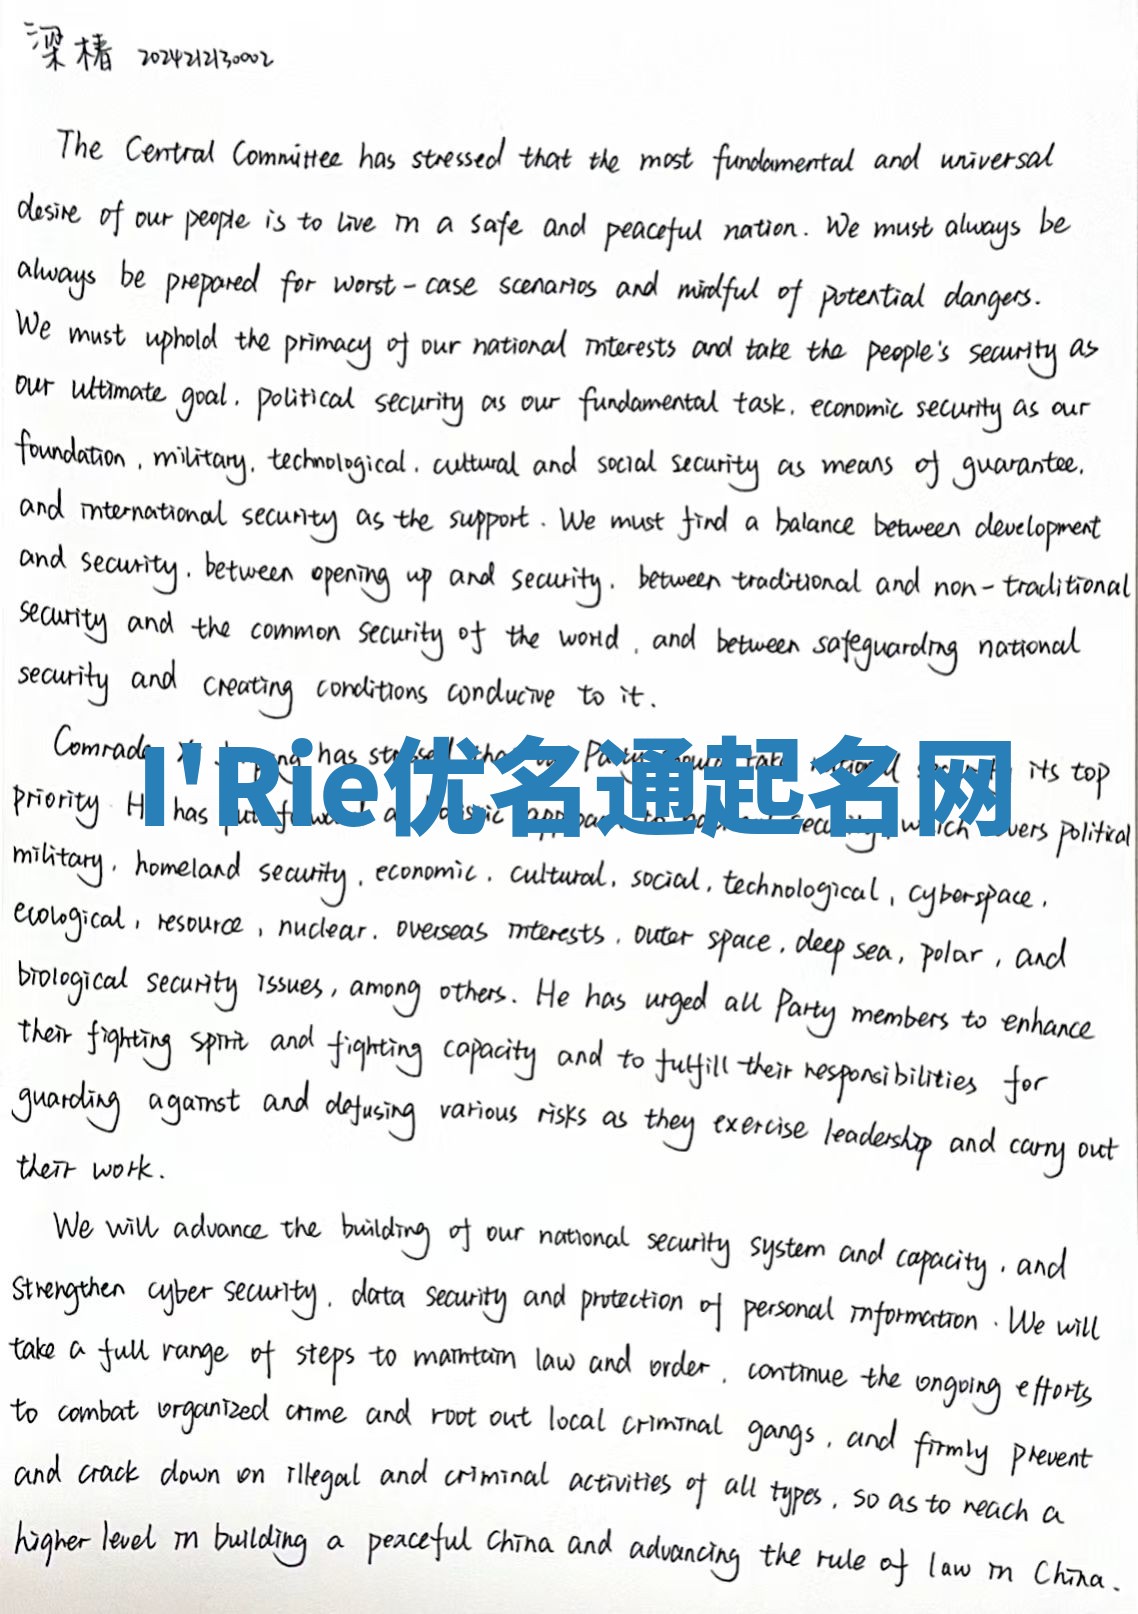 梁椿 2024212130002
The Central Committee has stressed that the most fundamental and universal
desire of our people is to live in a safe and peaceful nation. We must always be
always be prepared for worst-case scenarios and mindful of potential dangers.
We must uphold the primacy of our national interests and take the people's security as
our ultimate goal, political security as our fundamental task, economic security as our
foundation, military, technological, cultural and social security as means of guarantee,
and international security as the support. We must find a balance between development
and security, between opening up and security, between traditional and non-traditional
security and the common security of the world, and between safeguarding national
security and creating conditions conducive to it.
Comrade has stressed that Party its top
I'Rie优名通起名网
priority. He has put forward a holistic approach to security, which covers political
military, homeland security, economic, cultural, social, technological, cyberspace,
ecological, resource, nuclear, overseas interests, outer space, deep sea, polar, and
biological security issues, among others. He has urged all Party members to enhance
their fighting spirit and fighting capacity and to fulfill their responsibilities for
guarding against and defusing various risks as they exercise leadership and carry out
their work.
We will advance the building of our national security system and capacity, and
strengthen cyber security, data security and protection of personal information. We will
take a full range of steps to maintain law and order, continue the ongoing efforts
to combat organized crime and root out local criminal gangs, and firmly prevent
and crack down on illegal and criminal activities of all types, so as to reach a
higher level in building a peaceful China and advancing the rule of law in China.